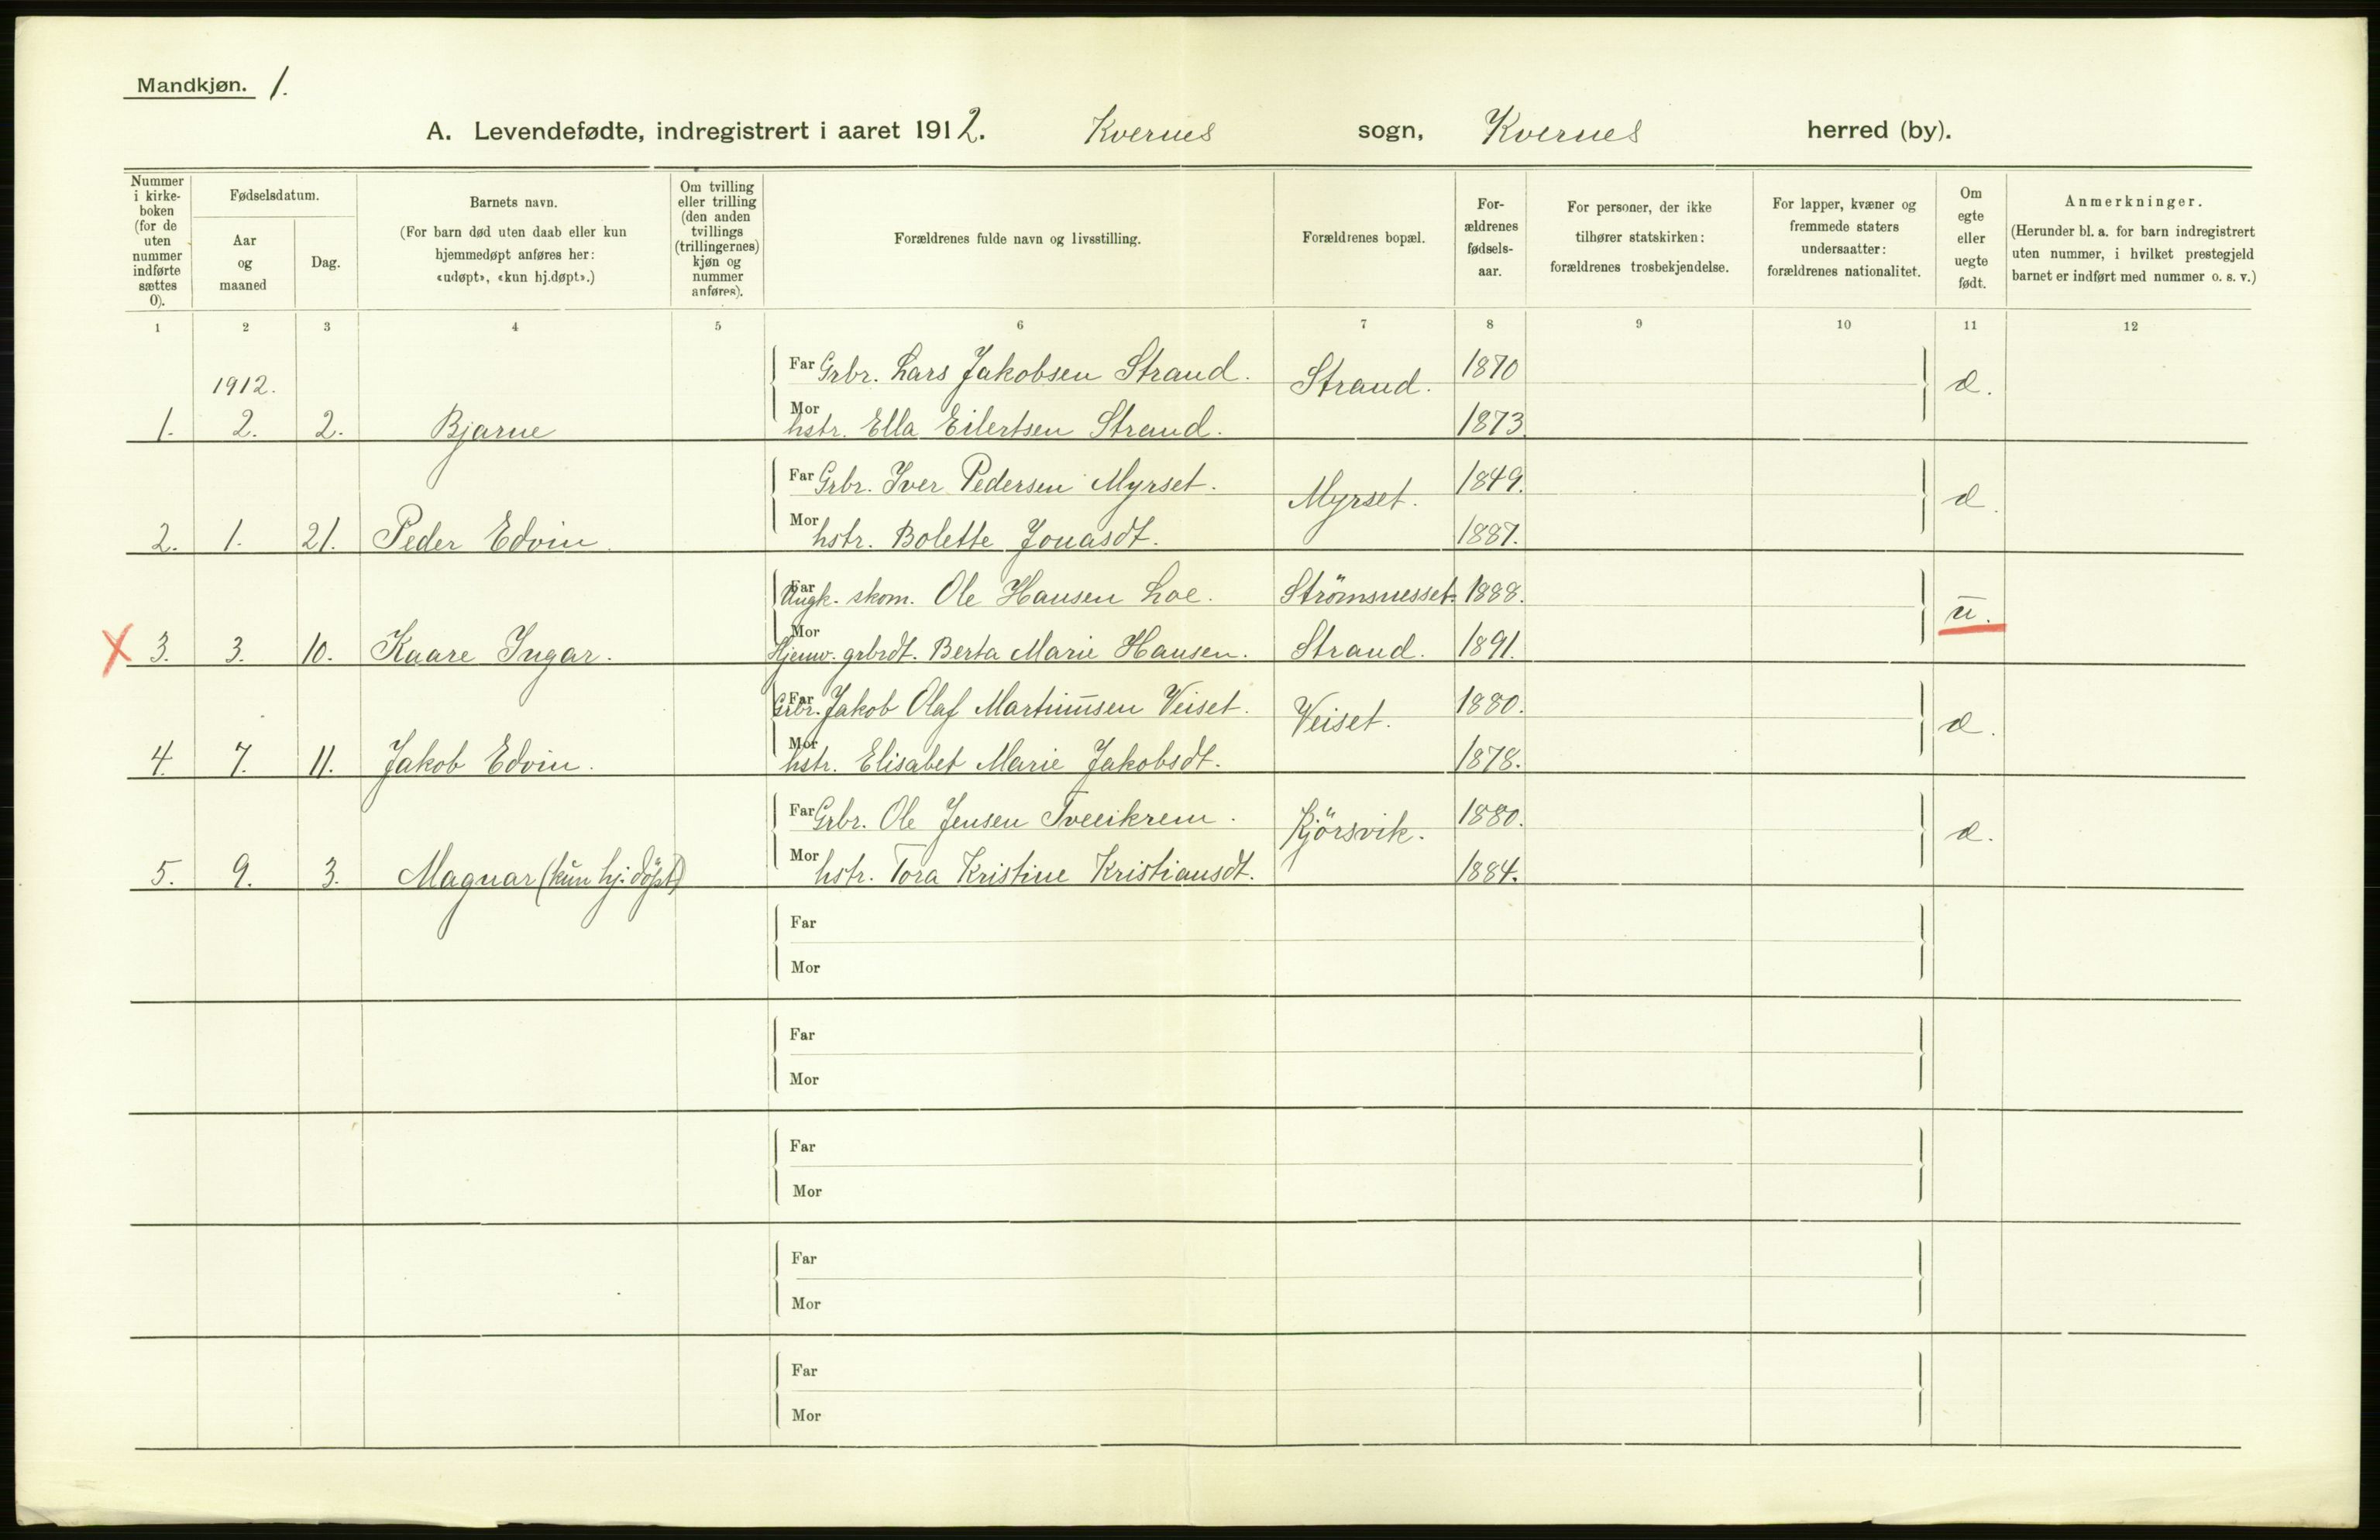 Mandkjøn. 1.
A. Levendefødte, indregistrert i aaret 1912. Kvernes sogn, Kvernes herred (by).
Nummer i kirke- boken (for de uten nummer indførte sættes 0).
Fødselsdatum.
Aar og maaned
Dag.
Barnets navn.
(For barn død uten daab eller kun hjemmedøpt anføres her: «udøpt», «kun hj.døpt».)
Om tvilling eller trilling (den anden tvillings (trillingernes) kjøn og nummer anføres).
Forældrenes fulde navn og livsstilling.
Forældrenes bopæl.
For- ældrenes fødsels- aar.
For personer, der ikke tilhører statskirken: forældrenes trosbekjendelse.
For lapper, kvæner og fremmede staters undersaatter: forældrenes nationalitet.
Om egte eller uegte født.
Anmerkninger.
(Herunder bl. a. for barn indregistrert uten nummer, i hvilket prestegjeld barnet er indført med nummer o. s. v.)
1 2 3 4 5 6 7 8 9 10 11 12
1912.
Far Grbr. Lars Jakobsen Strand. Strand. 1870 æ.
1. 2. 2. Bjarne Mor hstr. Ella Eilertsen Strand. 1873.
Far Grbr. Iver Pedersen Myrset. Myrset. 1849. æ.
2. 1. 21. Peder Edvin. Mor hstr. Bolette Jonasdt. 1887.
Far Ungk. skom. Ole Hansen Loe. Strömsnesset. 1888. u.
X 3. 3. 10. Kaare Ingar. Mor Hjemv. grbrdt. Berta Marie Hansen. Strand. 1891.
Far Grbr. Jakob Olaf Martinusen Veiset. Veiset. 1880. æ.
4. 7. 11. Jakob Edvin. Mor hstr. Elisabet Marie Jakobsdt. 1878.
Far Grbr. Ole Jensen Tveeikrem. Kjörsvik. 1880. æ.
5. 9. 3. Magnar (kun hj. döpt) Mor hstr. Tora Kristine Kristiansdt. 1884.
Far
Mor
Far
Mor
Far
Mor
Far
Mor
Far
Mor